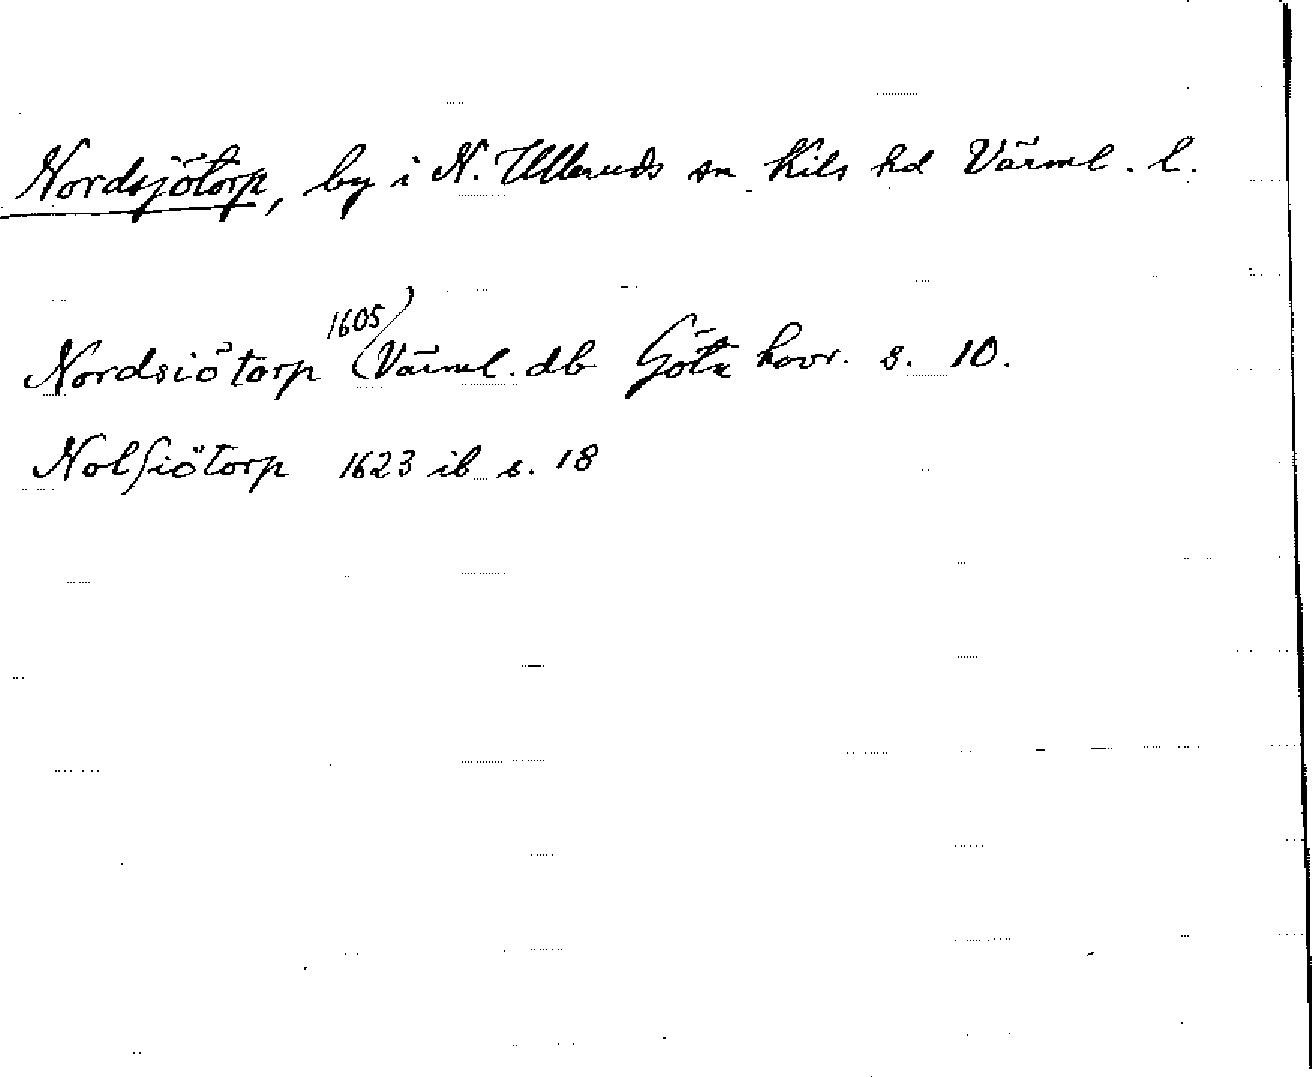 Nordsjötorp, by i N. Ulleruds sn Kils hd Värml. l.
Nordsiötorp 1605 Värml. db Göta hovr. s. 10.
Nolsiötorp 1623 ib s. 18